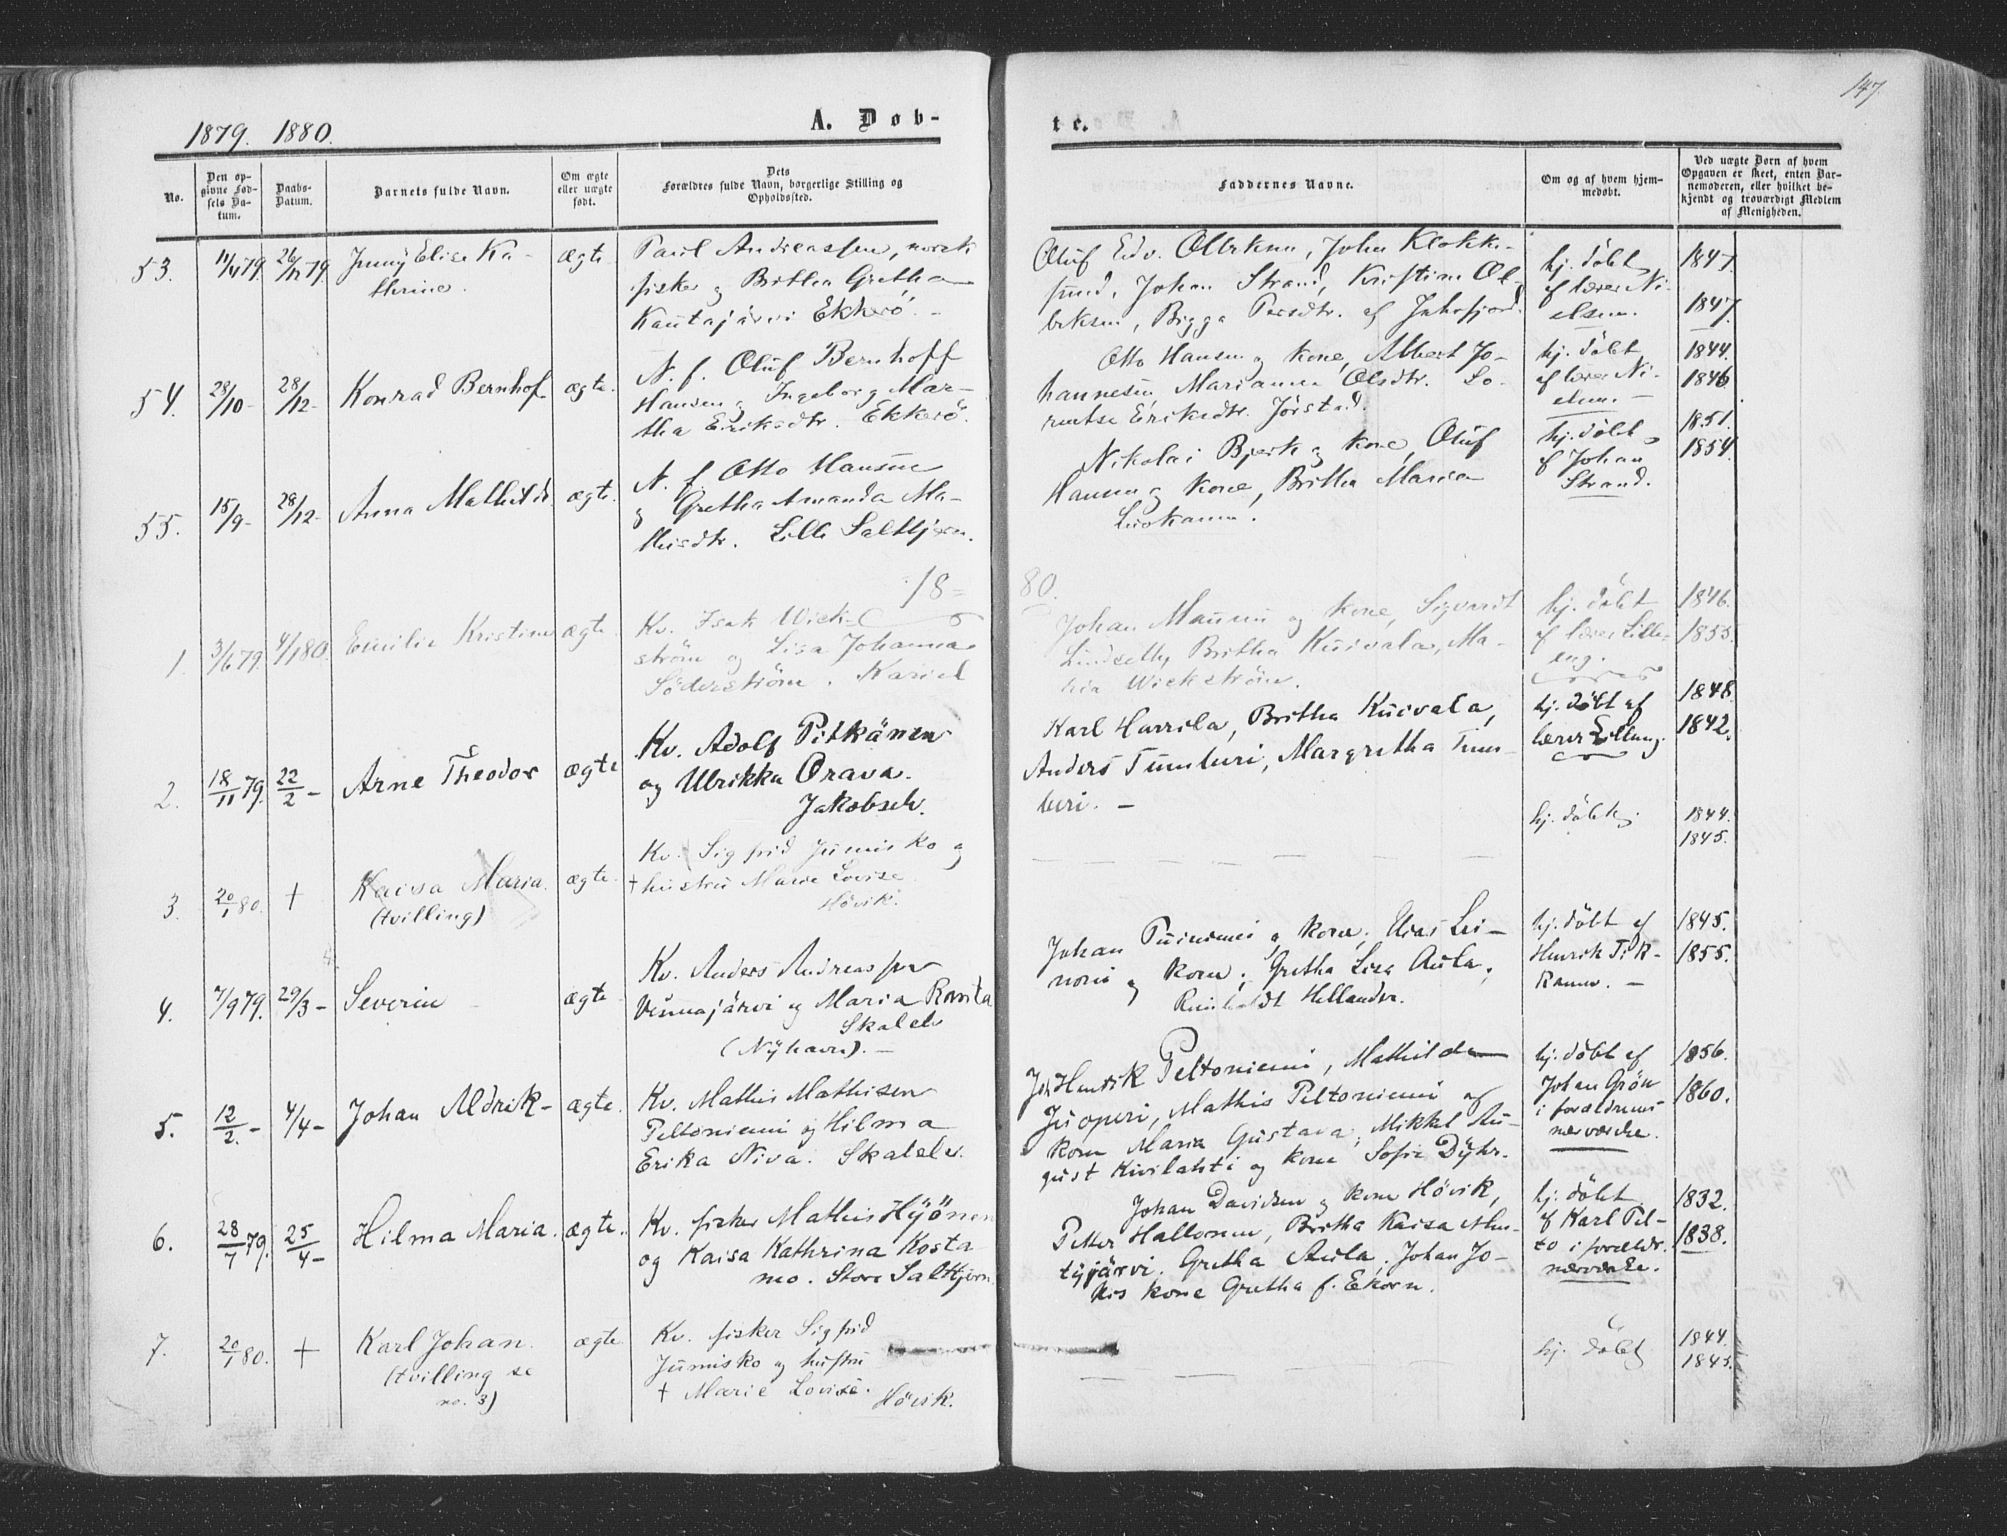 147.
1879. 1880.
A. Døb-
te.
No.
Den op-
givne Fød-
sels Da-
tum.
Daabs-
Datum.
Barnets fulde Navn.
Om ægte
eller uægte
født.
Dets
Forældres fulde Navn, borgerlige Stilling og
Opholdssted.
Faddernes Navne.
Om og af hvem hjem-
medøbt.
Ved uægte Børn af hvem
Opgaven er skeet, enten Bar-
nemoderen, eller hvilket be-
kjendt og troværdigt Medlem
af Menigheden.
53.
11/11 79.
26/12 79.
Jenny Elise Ka-
thrine.
ægte
Paul Andreassen, norsk
fisker og Britha Gretha
Kautajärvi Ekkerö. -
Oluf Edv. John Klokke-
sund, Johan Strand, Kristine Ol-
Bigga Persdtr. af Jakofjord.
hj. döbt
af lærer Ni-
elsen.
1847.
1847
54.
28/10-
28/12-
Konrad Bernhof
ægte.
N. f. Oluf Bernhoff
Hansen og Ingeborg Mar-
tha Eriksdtr. Ekkerö.
Otto Hansen og kone, Albert Jo-
hannesen, Marianna Olsdtr. Lo-
rentse Eriksdtr. Jörstad.
hj. döbt
af lærer Ni-
elsen. -
1844.
1846
55.
15/9-
28/12-
Anna Mathilde
ægte.
N. f. Otto Hansen
og Gretha Amanda Ma-
thisdtr. Lille Saltbjern.
Nikolai Bjerk og kone, Oluf
Hansen og kone, Britha Maria
hj. döbt
af Johan
Strand.
1851.
1854.
18=
80.
1.
3/6 79.
4/1 80.
Emilie Kristine
ægte.
Kv. Isak Wick-
ström og Lisa Johanna
Söderström. Kariel
Johan Maunu og kone, Sigvardt
Lindseth, Britha Kuivala, Ma-
ria Wickström.
hj. döbt
af lærer Lille-
eng.
1846.
1853.
2.
18/11 79.
22/2 -
Arne Theodor
ægte
Kv. Adolf Pitkänen
og Ulrikka Orava.
Jakobselv.
Karl Harrila, Britha Kuivala,
Anders Tumturi, Margretha Tum-
turi. -
hj. döbt af
lærer Lilleng.
1848
1842.
3.
20/1 80.
+
Kaisa Maria.
(tvilling)
ægte.
Kv. Sigfrid Jumisko og
+ hustru Marie Lovise
Hövik.
hj. döbt.
1844.
1845.
4.
7/9 79.
29/3 -
Severin
ægte
Kv. Anders Andreassen
Vennajärvi og Maria
Skalelv
(Nyhavn). -
Johan Puiniemi og kone, Elias Lei-
noni og kone, Gretha Lisa Aula,
Reinholdt Hellander.
hj. döbt af
Henrik Tik-
kanen. -
1845.
1855.
5.
12/2. -
4/4 -
Johan Aldrik -
ægte.
Kv. Mathis Mathisen
Peltoniemi og Hilma
Erika Niva. Skalelv.
Joh. Henrik Peltoniemi, Mathilde
Juoperi, Mathis Peltoniemi og
kone Maria Gustava, Mikkel Au-
gust Kivilahti og kone Sofie Dyhr.
hj. döbt af
Johan Grön
i forældrenes
nærværelse.
1856.
1860.
6.
28/7 79.
25/4 -
Hilma Maria.
ægte.
Kv. fisker Mathis Hyönen
og Kaisa Kathrina Kosta-
mo. Store Saltbjern
Johan Davidsen og kone Hövik,
Petter Hallonen, Britha Kaisa
Gretha Aula, Johan Jo-
kis kone Gretha f. Ekorn.
hj. döbt
af Karl Pel-
to i forældr.
nærværelse.
1832.
1838.
7.
20/1 80.
+
Karl Johan.
(tvilling se
no. 3)
ægte
Kv. fisker Sigfrid
Jumisko og hustru
+ Marie Lovise.
Hövik.
hj. döbt
1844.
1845.